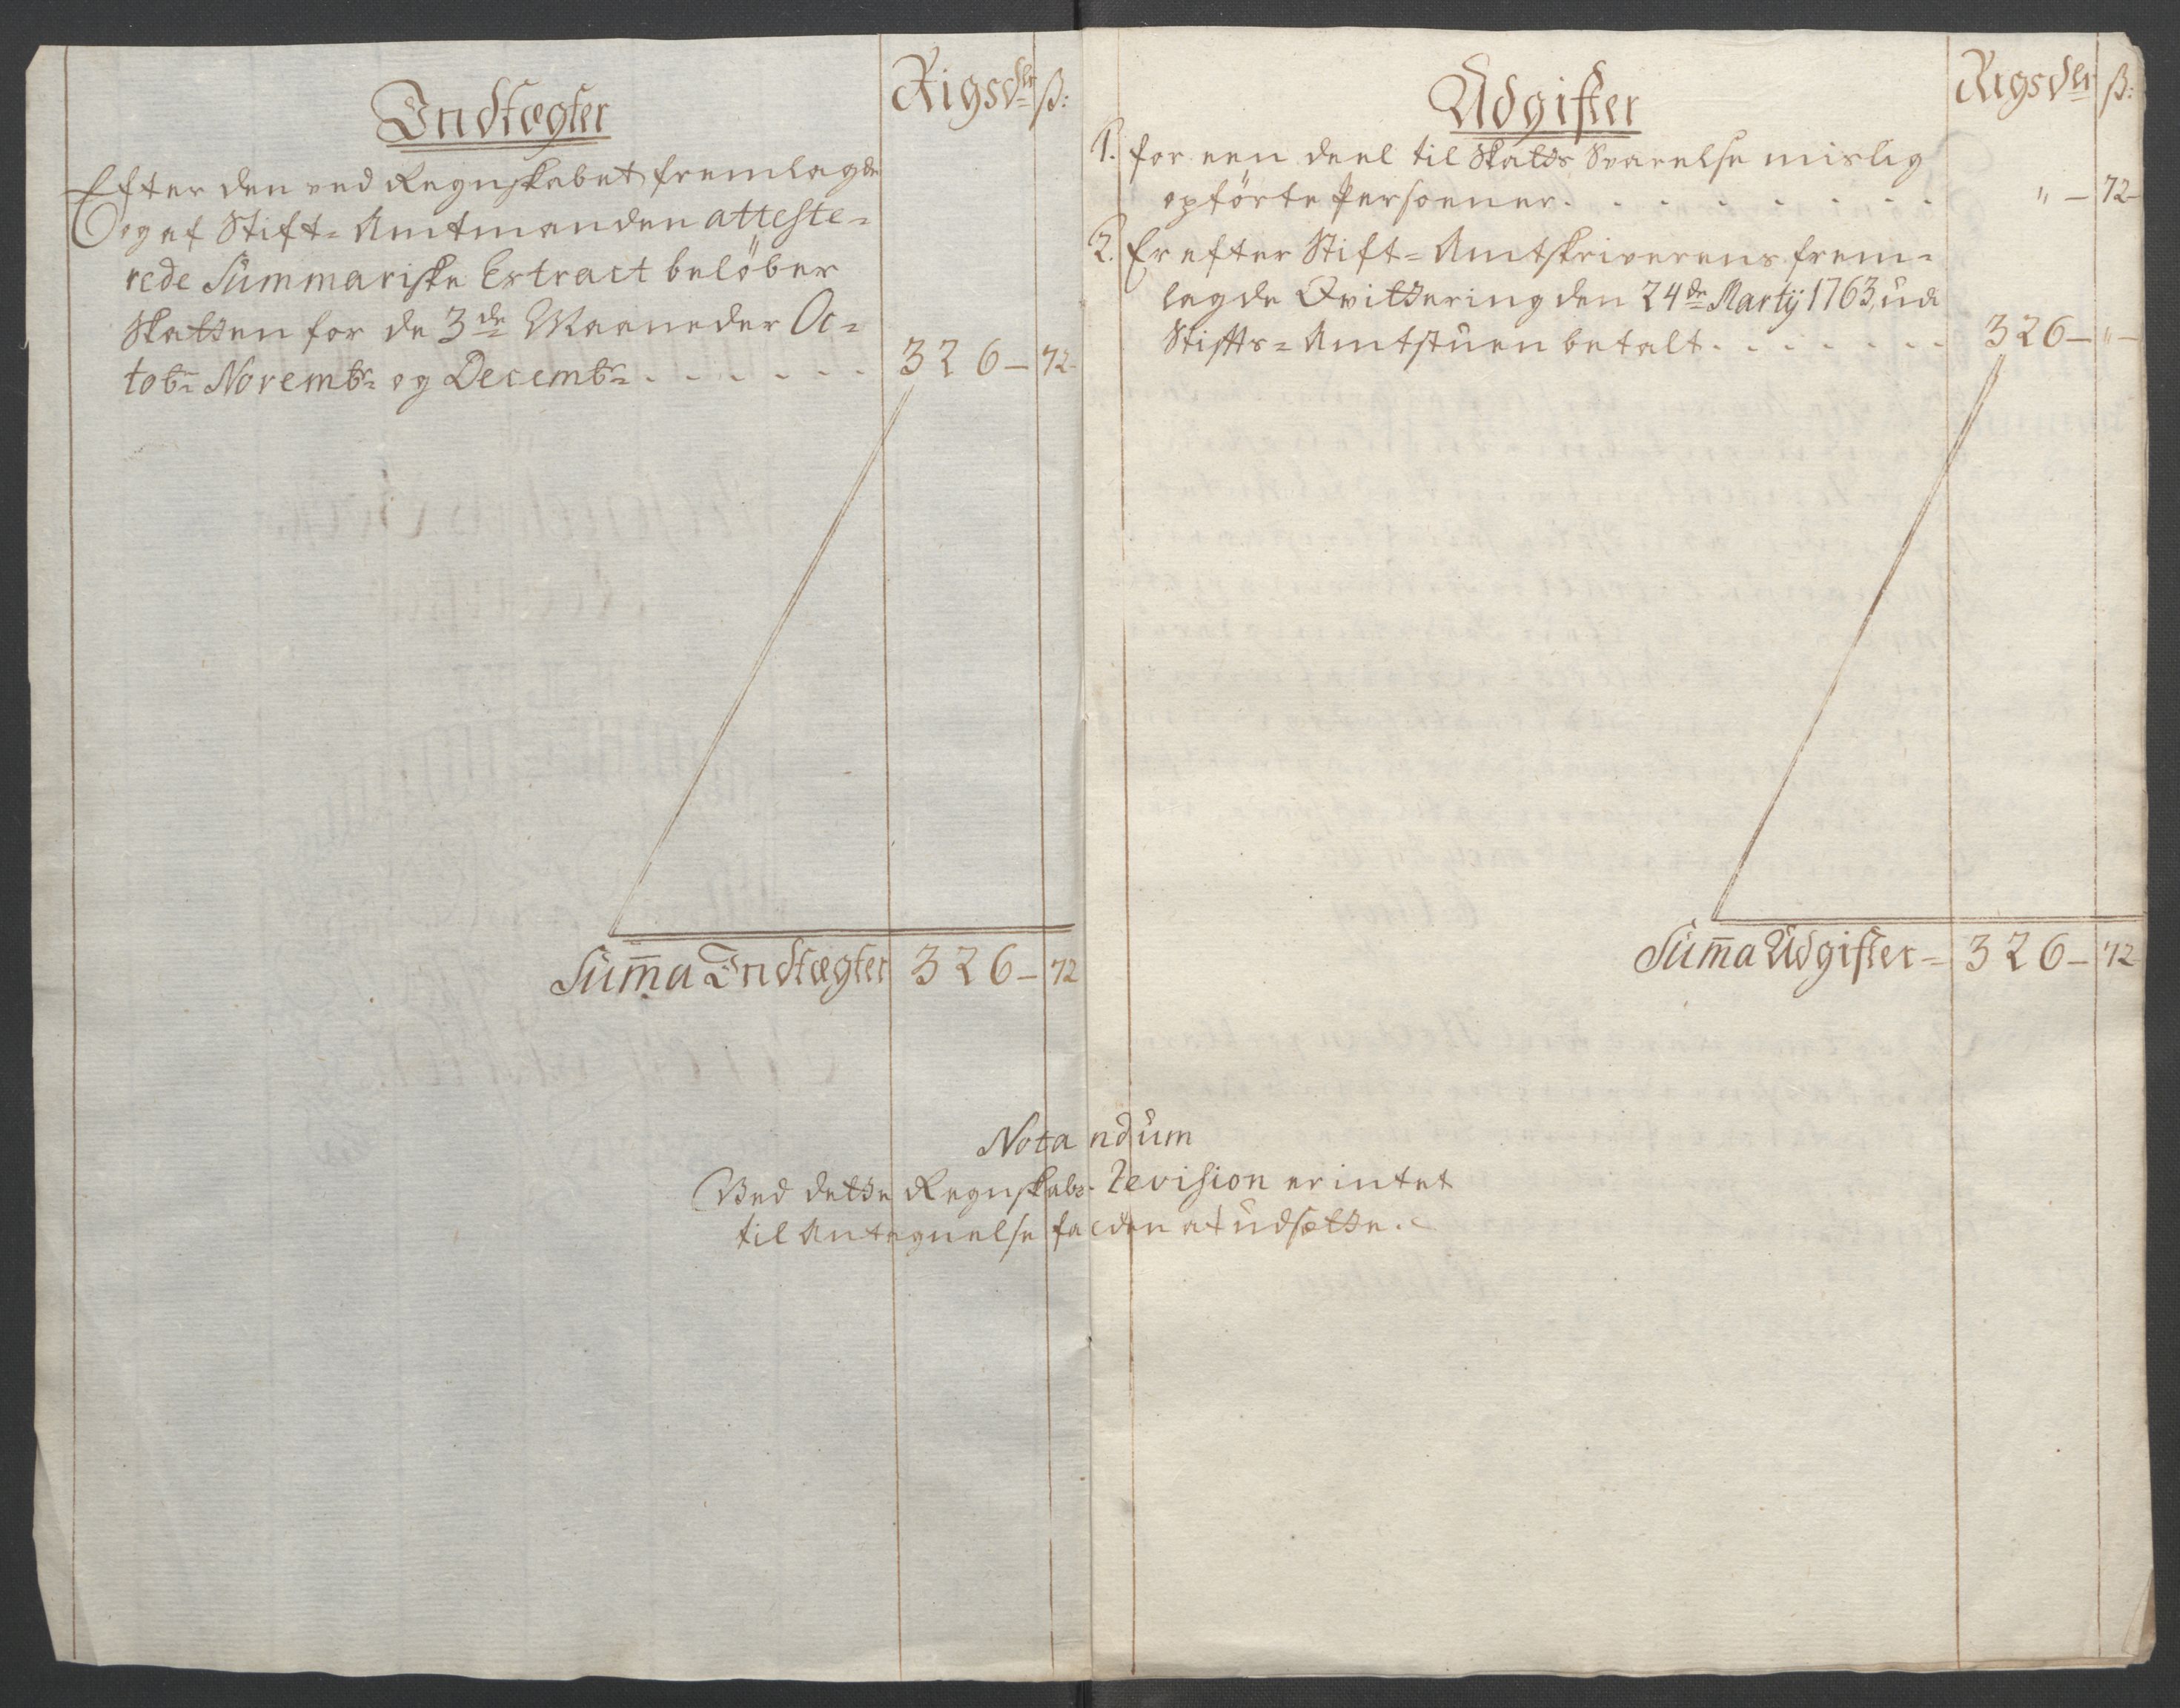 Indtægter
Rigsdlr
ß:
Efter den ved Regnskabet fremlagde
og af Stift-Amtmanden atteste=
rede Summariske Extract beløber
Skatten for de 3de Maaneder Oc=
tobr Novembr og Decembr . . . . . . 326 – 72 –
Summa Indtægter 326 – 72
Udgifter
Rigsdlr
ß:
1. for een deel til Skatts Svarelse mislig
opførte Persoener . . . . . . . . " – 72 –
2. Er efter Stift-Amtskriverens frem=
lagde Qvittering den 24de Martij 1763, udi
Stifts-Amtstuen betalt . . . . . . . 326 – " –
Summa Udgifter = 326 – 72 –
Notandum
Ved dette Regnskabs Revision er intet
til Antegnelse falden at udsætte.